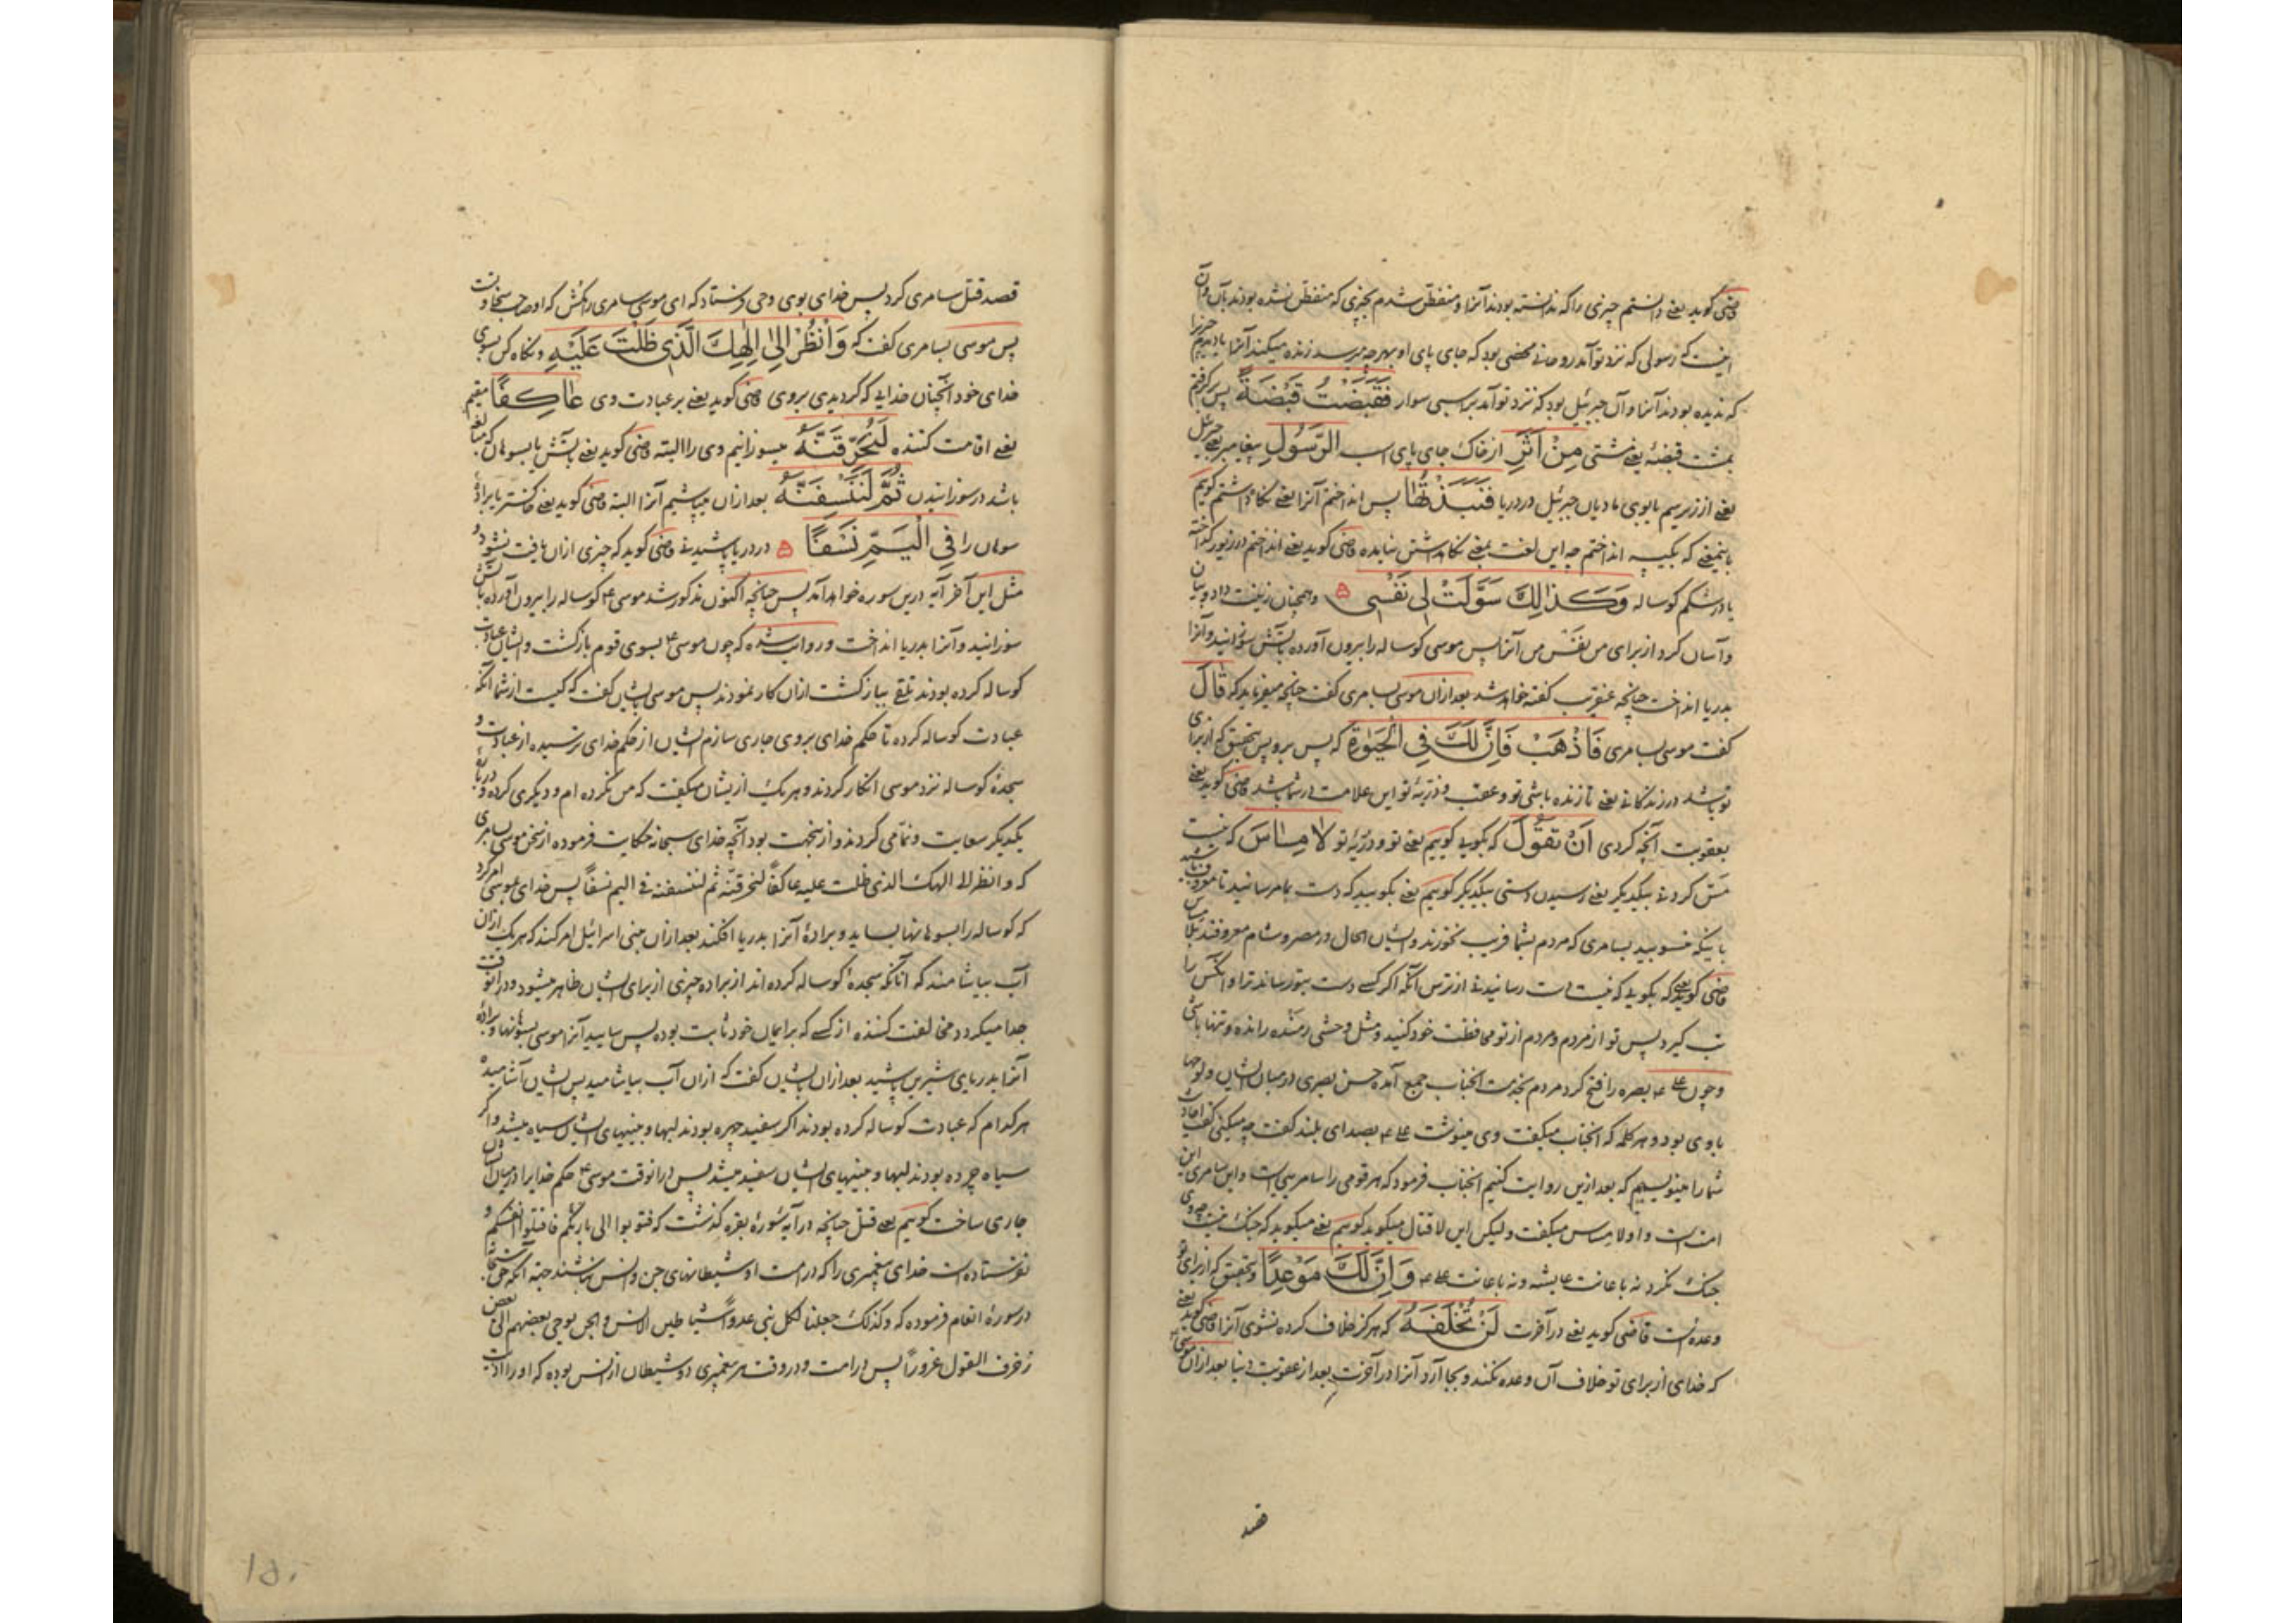 قاضی گوید یعنی دانستم چیزی را که ندانسته بودند آنرا و متفطن شدم بچیزی که متفطن نشده بودند بآن و آن
اینست که رسولی که نزد تو آمد روحانی محضی بود که جای پای او بهر چه میرسد زنده میکند آنرا یا دیدم چیزی را
که ندیده بودند آنرا و آن جبرئیل بود که نزد تو آمد بر اسبی سوار فَقَبَضْتُ قَبْضَةً پس گرفتم
بمشت قبضهٔ یعنی مشتی مِنْ اَثَرِ از خاک جای پای اسب الرَّسُولِ پیغامبر یعنی جبرئیل
یعنی از زیر سم یابوی مادیان جبرئیل در دریا فَنَبَذْتُهَا پس انداختم آنرا یعنی نگاه داشتم گویم
باینمعنی که بکیسه انداختم چه این لغت بمعنی نگاه داشتن نیامده قاضی گوید یعنی انداختم در زیور گداخته
یا در شکم گوساله وَكَذٰلِكَ سَوَّلَتْ لِی نَفْسِی ه و همچنان زینت داد و بیان
و آسان کرد از برای من نفس من آنرا پس موسی گوساله را بیرون آورده بآتش سوزانید و آنرا
بدریا انداخت چنانچه عنقریب گفته خواهد شد بعد ازان موسی بسامری گفت چنانچه میفرماید که قَالَ
گفت موسی بسامری فَاذْهَبْ فَاِنَّ لَكَ فِی الْحَیٰوةِ که پس برو پس بتحقیق که از برای
تو باشد در زندگانی یعنی تا زنده باشی تو و عقب و ذریهٔ تو این علامت در شما باشد قاضی گوید یعنی
بعقوبت آنچه کردی اَنْ تَقُولَ که بگویی گوییم یعنی تو و ذریهٔ تو لَا مِسَاسَ که نیست
مس کردنی بیکدیگر یعنی رسیدن دستی بیکدیگر گوییم یعنی بگویید که دست بما مرسانید تا معروف باشید
باینکه منسوبید بسامری که مردم بشما فریب نخورند و ایشان الحال در مصر و شام معروفند بلا مساس
قاضی گوید یعنی که بگویی که نیست دست رسانیدنی از ترس آنکه اگر کسی دست بتو رساند ترا و آنکس را
تب گیرد پس تو از مردم و مردم از تو محافظت خود کنید و مثل وحشی رمنده رانده و تنها باشی
و چون علی ع بصره را فتح کرد مردم بخدمت آنجناب جمع آمده حسن بصری در میان ایشان و لوحها
با وی بود و هر کلمه که آنجناب میگفت وی مینوشت علی ع بصدای بلند گفت چه میکنی گفت احادیث
شما را مینویسیم که بعد ازین روایت کنیم آنجناب فرمود که هر قومی را سامریی است و این سامری این
امت است و او لا مساس میگفت و لیکن این لا قتال میگوید گوییم یعنی میگوید که جنگ نیست چه وی
جنگ نکرد نه باعانت عایشه و نه باعانت علی ع وَاِنَّ لَكَ مَوْعِدًا و بتحقیق که از برای تو
وعده است قاضی گوید یعنی در آخرت لَنْ تُخْلَفَهُ که هرگز خلاف کرده نشوی آنرا قاضی گوید یعنی
که خدای از برای تو خلاف آن وعده نکند و بجا آرد آنرا در آخرت بعد از عقوبت دنیا بعد ازان موسی
قصد
قصد قتل سامری کرد پس خدای بوی وحی فرستاد که ای موسی سامری را مکش که او صاحب سخاوتست
پس موسی بسامری گفت که وَانْظُرْ اِلٰی اِلٰهِكَ الَّذِی ظَلْتَ عَلَیْهِ و نگاه کن بسوی
خدای خود آنچنان خدایی که گردیدی بر وی قاضی گوید یعنی بر عبادت وی عَاكِفًا مقیم
یعنی اقامت کننده لَنُحَرِّقَنَّهُ میسوزانیم وی را البته قاضی گوید یعنی بآتش یا بسوهان که مبالغه
باشد در سوزانیدن ثُمَّ لَنَنْسِفَنَّهُ بعد ازان میپاشیم آنرا البته قاضی گوید یعنی خاکستر یا برادهٔ
سوهان را فِی الْیَمِّ نَسْفًا ه در دریا پاشیدنی قاضی گوید که چیزی ازان یافت نشود و
مثل این آخر آیه درین سوره خواهد آمد پس چنانچه اکنون مذکور شد موسی ع گوساله را بیرون آورده بآتش
سوزانید و آنرا بدریا انداخت و روایت شده که چون موسی ع بسوی قوم بازگشت و ایشان عبادت
گوساله کرده بودند تلقی ببازگشت ازان کار نمودند پس موسی بایشان گفت که کیست از شما آنکه
عبادت گوساله کرده تا حکم خدای بر وی جاری سازم ایشان از حکم خدای ترسیده از عبادت و
سجدهٔ گوساله نزد موسی انکار کردند و هر یک ازیشان میگفت که من نکرده ام و دیگری کرده و دربارهٔ
یکدیگر سعایت و نمامی کردند و ازینجهت بود آنچه خدای سبحانه حکایت فرموده از سخن موسی بسامری
که وانظر الی الهک الذی ظلت علیه عاکفا لنحرقنه ثم لننسفنه فی الیم نسفا پس خدای بموسی امر کرد
که گوساله را بسوهانها بساید و برادهٔ آنرا بدریا افکند بعد ازان بنی اسرائیل امر کند که هر یک ازان
آب بیاشامند که آنانکه سجدهٔ گوساله کرده اند از براده چیزی از برای ایشان ظاهر میشود و درانوقت
جدا میگردد مخالفت کننده از کسی که بر ایمان خود ثابت بوده پس سایید آنرا موسی بسوهانها و برادهٔ
آنرا بدریای شیرین پاشید بعد ازان بایشان گفت که ازان آب بیاشامید پس ایشان آشامیده
هر کدام که عبادت گوساله کرده بودند اگر سفید چهره بودند لبها و بینیهای ایشان سیاه میشد و اگر
سیاه چرده بودند لبها و بینیهای ایشان سفید میشد پس درانوقت موسی ع حکم خدایرا در میان ایشان
جاری ساخت گوییم یعنی قتل چنانچه در آیهٔ سورهٔ بقره گذشت که فتوبوا الی بارئکم فاقتلوا انفسکم و
نفرستاده است خدای پیغمبری را که در امت او شیطانهای جن و انس نباشند چنانکه
در سورهٔ انعام فرموده که وکذلک جعلنا لکل نبی عدوا شیاطین الانس والجن یوحی بعضهم الی بعض
زخرف القول غرورا پس در امت و در وقت هر پیغمبری دو شیطان از انس بوده که او را اذیت
۱۵۰